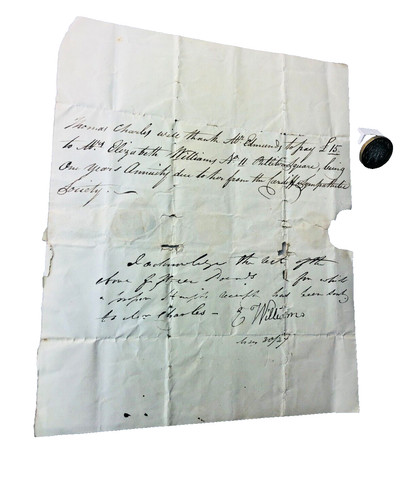 Thomas Charles will thank Mr Edmund, to pay £15
to Mrs Elizabeth Williams No 11 Square, being
One Years Annuity due to her from the Cardiff
Society.
I acknowledge the of the
above fifteen Pounds for which
a proper receipt has been
to Mr Charles -
E Williams
20/27